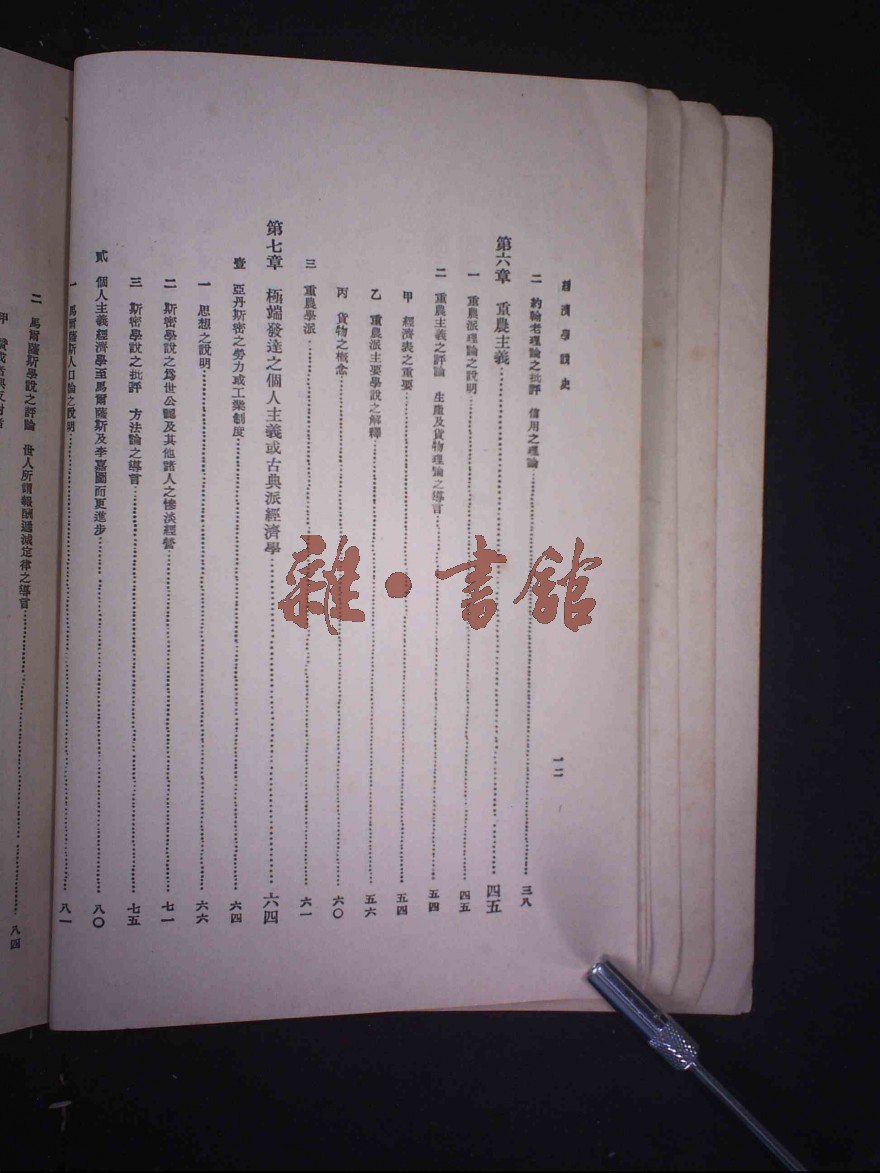 經濟學說史
一二
二 約翰老理論之批評 信用之理論 三八
第六章 重農主義 四五
一 重農派理論之說明 四五
二 重農主義之評論 生產及貨物理論之導言 五四
甲 經濟表之重要 五四
乙 重農派主要學說之解釋 五六
丙 貨物之概念 六〇
三 重農學派 六一
第七章 極端發達之個人主義或古典派經濟學 六四
壹 亞丹斯密之勞力或工業制度 六四
一 思想之說明 六六
二 斯密學說之爲世公認及其他諸人之慘淡經營 七一
三 斯密學說之批評 方法論之導言 七五
貳 個人主義經濟學至馬爾薩斯及李嘉圖而更進步 八〇
一 馬爾薩斯人口論之說明 八一
二 馬爾薩斯學說之評論 世人所謂報酬遞減定律之導言 八四
甲 贊成者與反對者
雜·書館